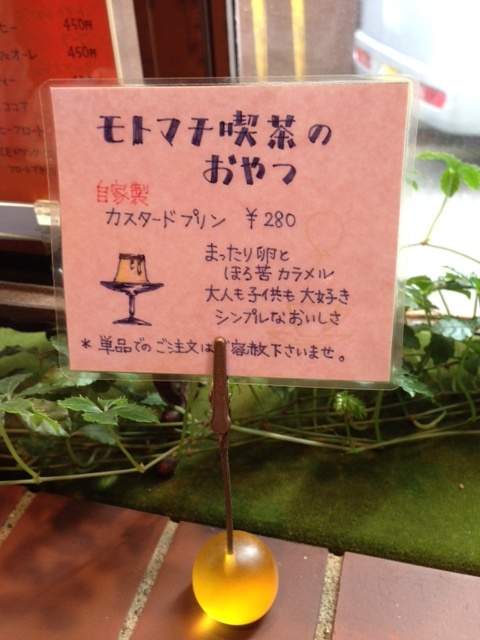 450円
450円
ココア
モトマチ喫茶の
おやつ
自家製
カスタードプリン ¥280
まったり卵と
ほろ苦カラメル
大人も子供も大好き
シンプルなおいしさ
*単品でのご注文はご容赦下さいませ。